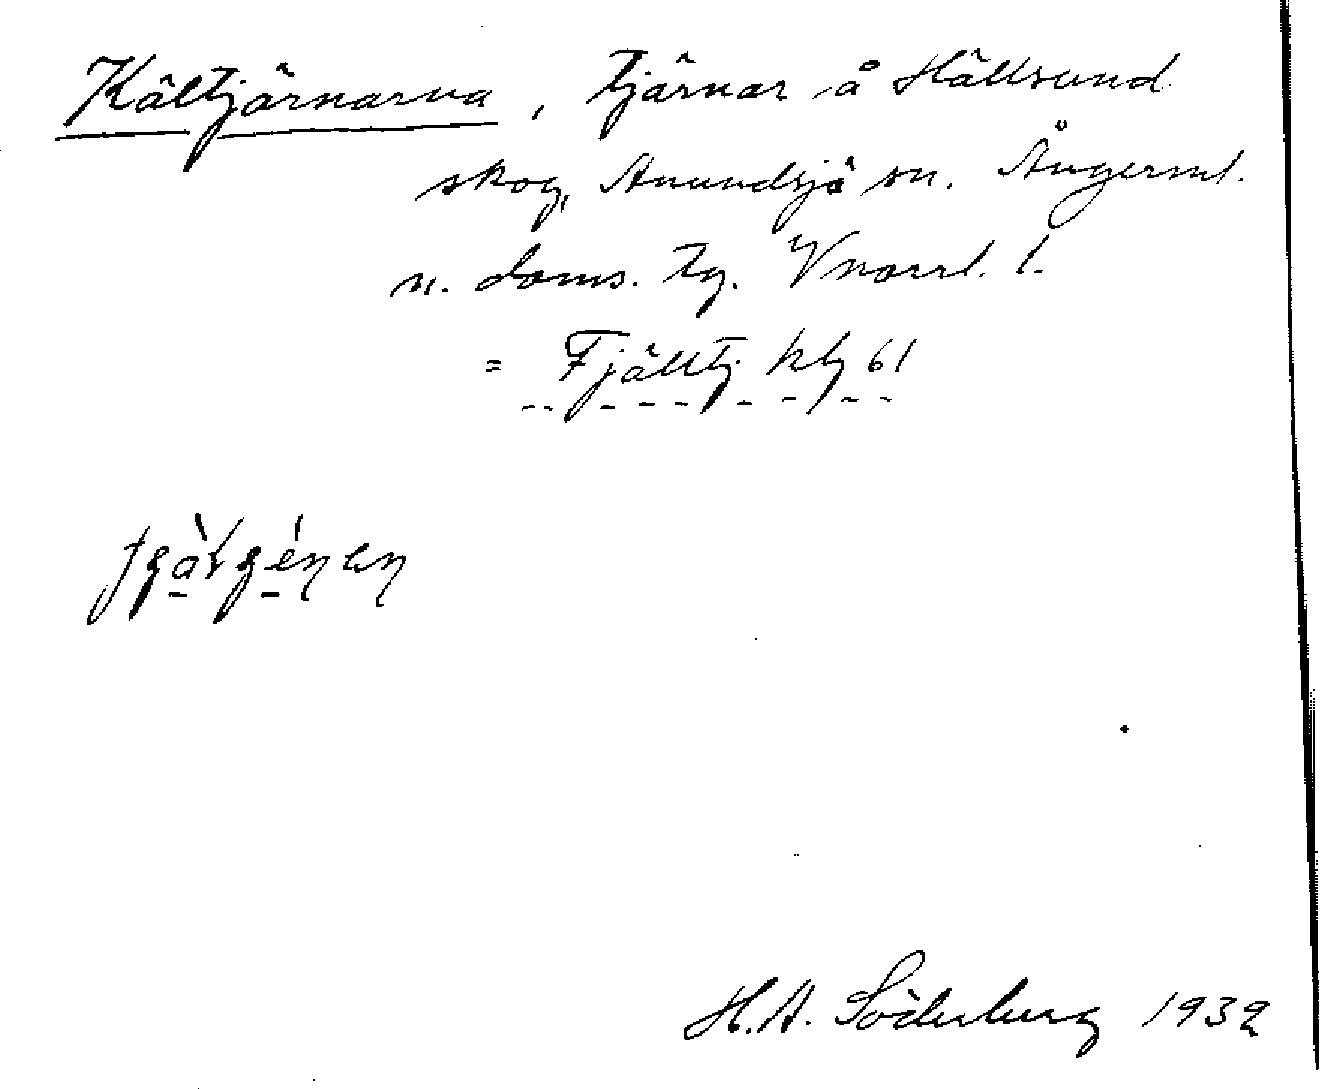 Kältjärnarna, tjärnar å Hällsund
skog, Anundsjö sn. Ångerml.
n. doms. tg. Vnorrl. l.
= Fjälltj kbl 61
H. A. Söderberg 1932